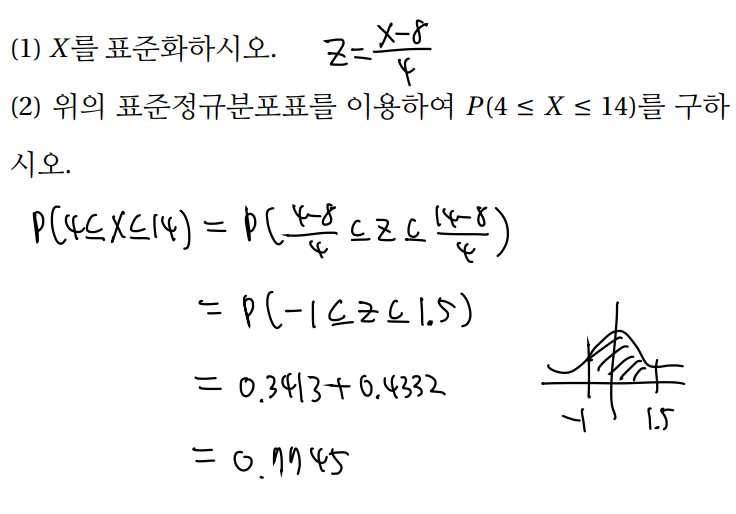 (1) X를 표준화하시오. Z = (X-8)/4
(2) 위의 표준정규분포표를 이용하여 P(4 ≤ X ≤ 14)를 구하
시오.
P(4≤X≤14) = P((4-8)/4 ≤ Z ≤ (14-8)/4)
= P(-1 ≤ Z ≤ 1.5)
= 0.3413+0.4332
-1 1.5
= 0.7745